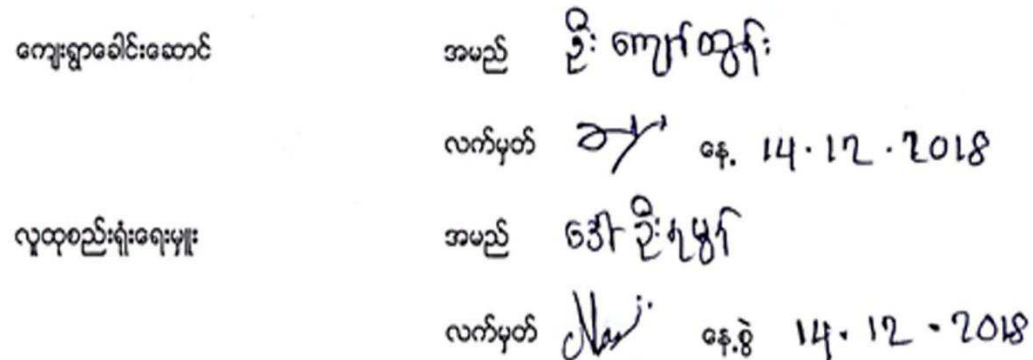 ကျေးရွာခေါင်းဆောင် အမည် ဦးကျော်ထွန်း
လက်မှတ် နေ့ 14.12.2018
လူထုစည်းရုံးရေးမှူး အမည် ဒေါ်ဦးရမွန်
လက်မှတ် နေ့စွဲ 14.12.2018